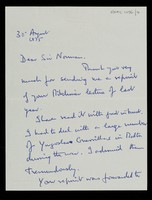 30 August
1975
Dear Sir Norman,
Thank you very
much for sending me a reprint
of your Bikelas lecture of last
year.
I have read it with great interest
I had to deal with a large number
of Yugoslav casualties in Malta
during the war. I admired them
tremendously.
Your reprint was forwarded to